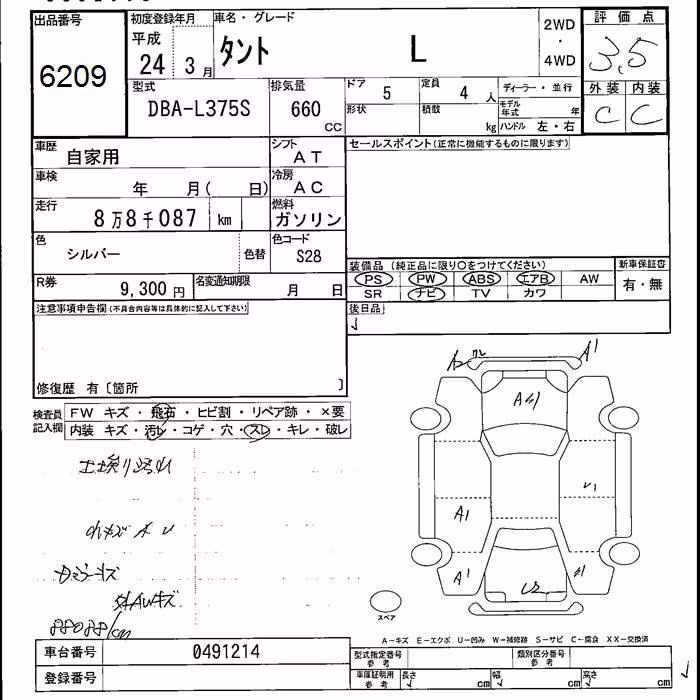 出品番号 初度登録年月 車名・グレード 2WD・4WD 評価点
6209 平成 24 3月 タント L 3.5
型式 排気量 ドア 5 定員 4 人 ディーラー・並行 外装 内装
DBA-L375S 660 CC 形状 積載 kg モデル年式 年 C C
ハンドル 左・右
車歴 自家用 シフト AT セールスポイント(正常に機能するものに限ります)
車検 年 月( 日) 冷房 AC
走行 8万8千087 km 燃料 ガソリン
色 シルバー 色替 色コード S28
装備品 (純正品に限り○をつけてください) 新車保証書
PS PW ABS エアB AW 有・無
SR ナビ TV カワ
R券 9,300円 名変通知期限 月 日
後日品
注意事項申告欄(不具合内容等は具体的に記入して下さい)
修復歴 有〔箇所 〕
検査員記入欄 FW キズ・飛石・ヒビ割・リペア跡・×要
内装 キズ・汚レ・コゲ・穴・スレ・キレ・破レ
A1
A4
A1
A1
U2
スペア
A-キズ E-エクボ U-凹み W-補修跡 S-サビ C-腐食 XX-交換済
車台番号 0491214 型式指定番号 参考 類別区分番号 参考
登録番号 車庫証明用 参考 長さ cm 幅 cm 高さ cm